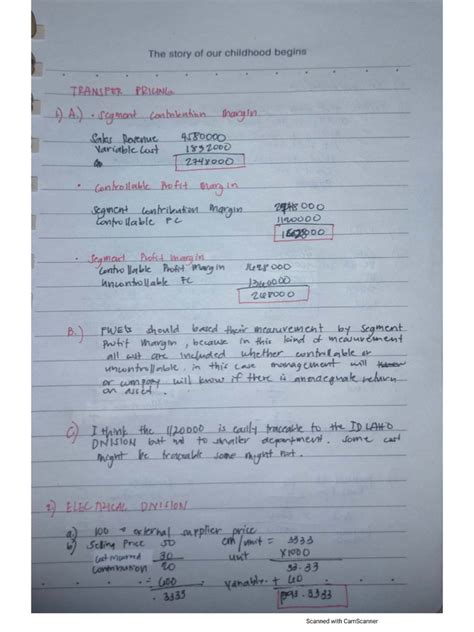 The story of our childhood begins
TRANSFER PRICING
1) A.) • Segment Contribution Margin
Sales Revenue 4580000
Variable Cost 1832000
2748000
• Controllable Profit Margin
Segment Contribution Margin 2748000
Controllable FC 1120000
1628000
• Segment Profit Margin
Controllable Profit Margin 1628000
Uncontrollable FC 1360000
268000
B.) should based their measurement by Segment
Profit Margin, because in this kind of measurement
all cost are included whether controllable or
uncontrollable, in this case management will
or company will know if there is an return
on asset.
C) I think the 1120000 is easily traceable to the IDLAHO
DIVISION but not to smaller department. Some cost
might be traceable some might not.
2) ELECTRICAL DIVISION
a) 100 → external supplier price
b) Selling Price 50 cm/unit = 3333
Cost incurred 30 unit x1000
Contribution 20 33.33
÷ 600 Variable + 60
.3333 93.3333
Scanned with CamScanner